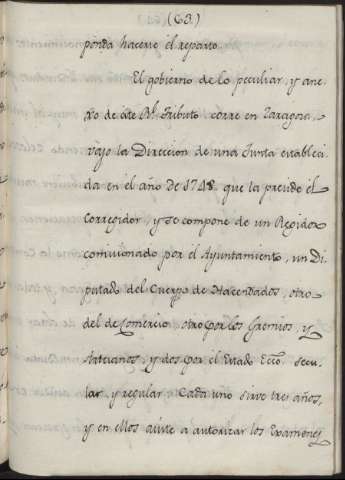 (63.)
ponda hacerse el reparto.
El gobierno de lo peculiar, y ane-
xo de este Rl. Tributo corre en Zaragoza,
vajo la Direccion de una Junta estableci-
da en el año de 1748. que la preside el
Corregidor, y se compone de un Regidor
comisionado por el Ayuntamiento, un Di-
putado del Cuerpo de Hacendados, otro
del de Comercio, otro por los Gremios, y
Artesanos, y dos por el Estado Ecco. secu-
lar, y regular. Cada uno sirve tres años,
y en ellos asiste a autorizar los Examenes